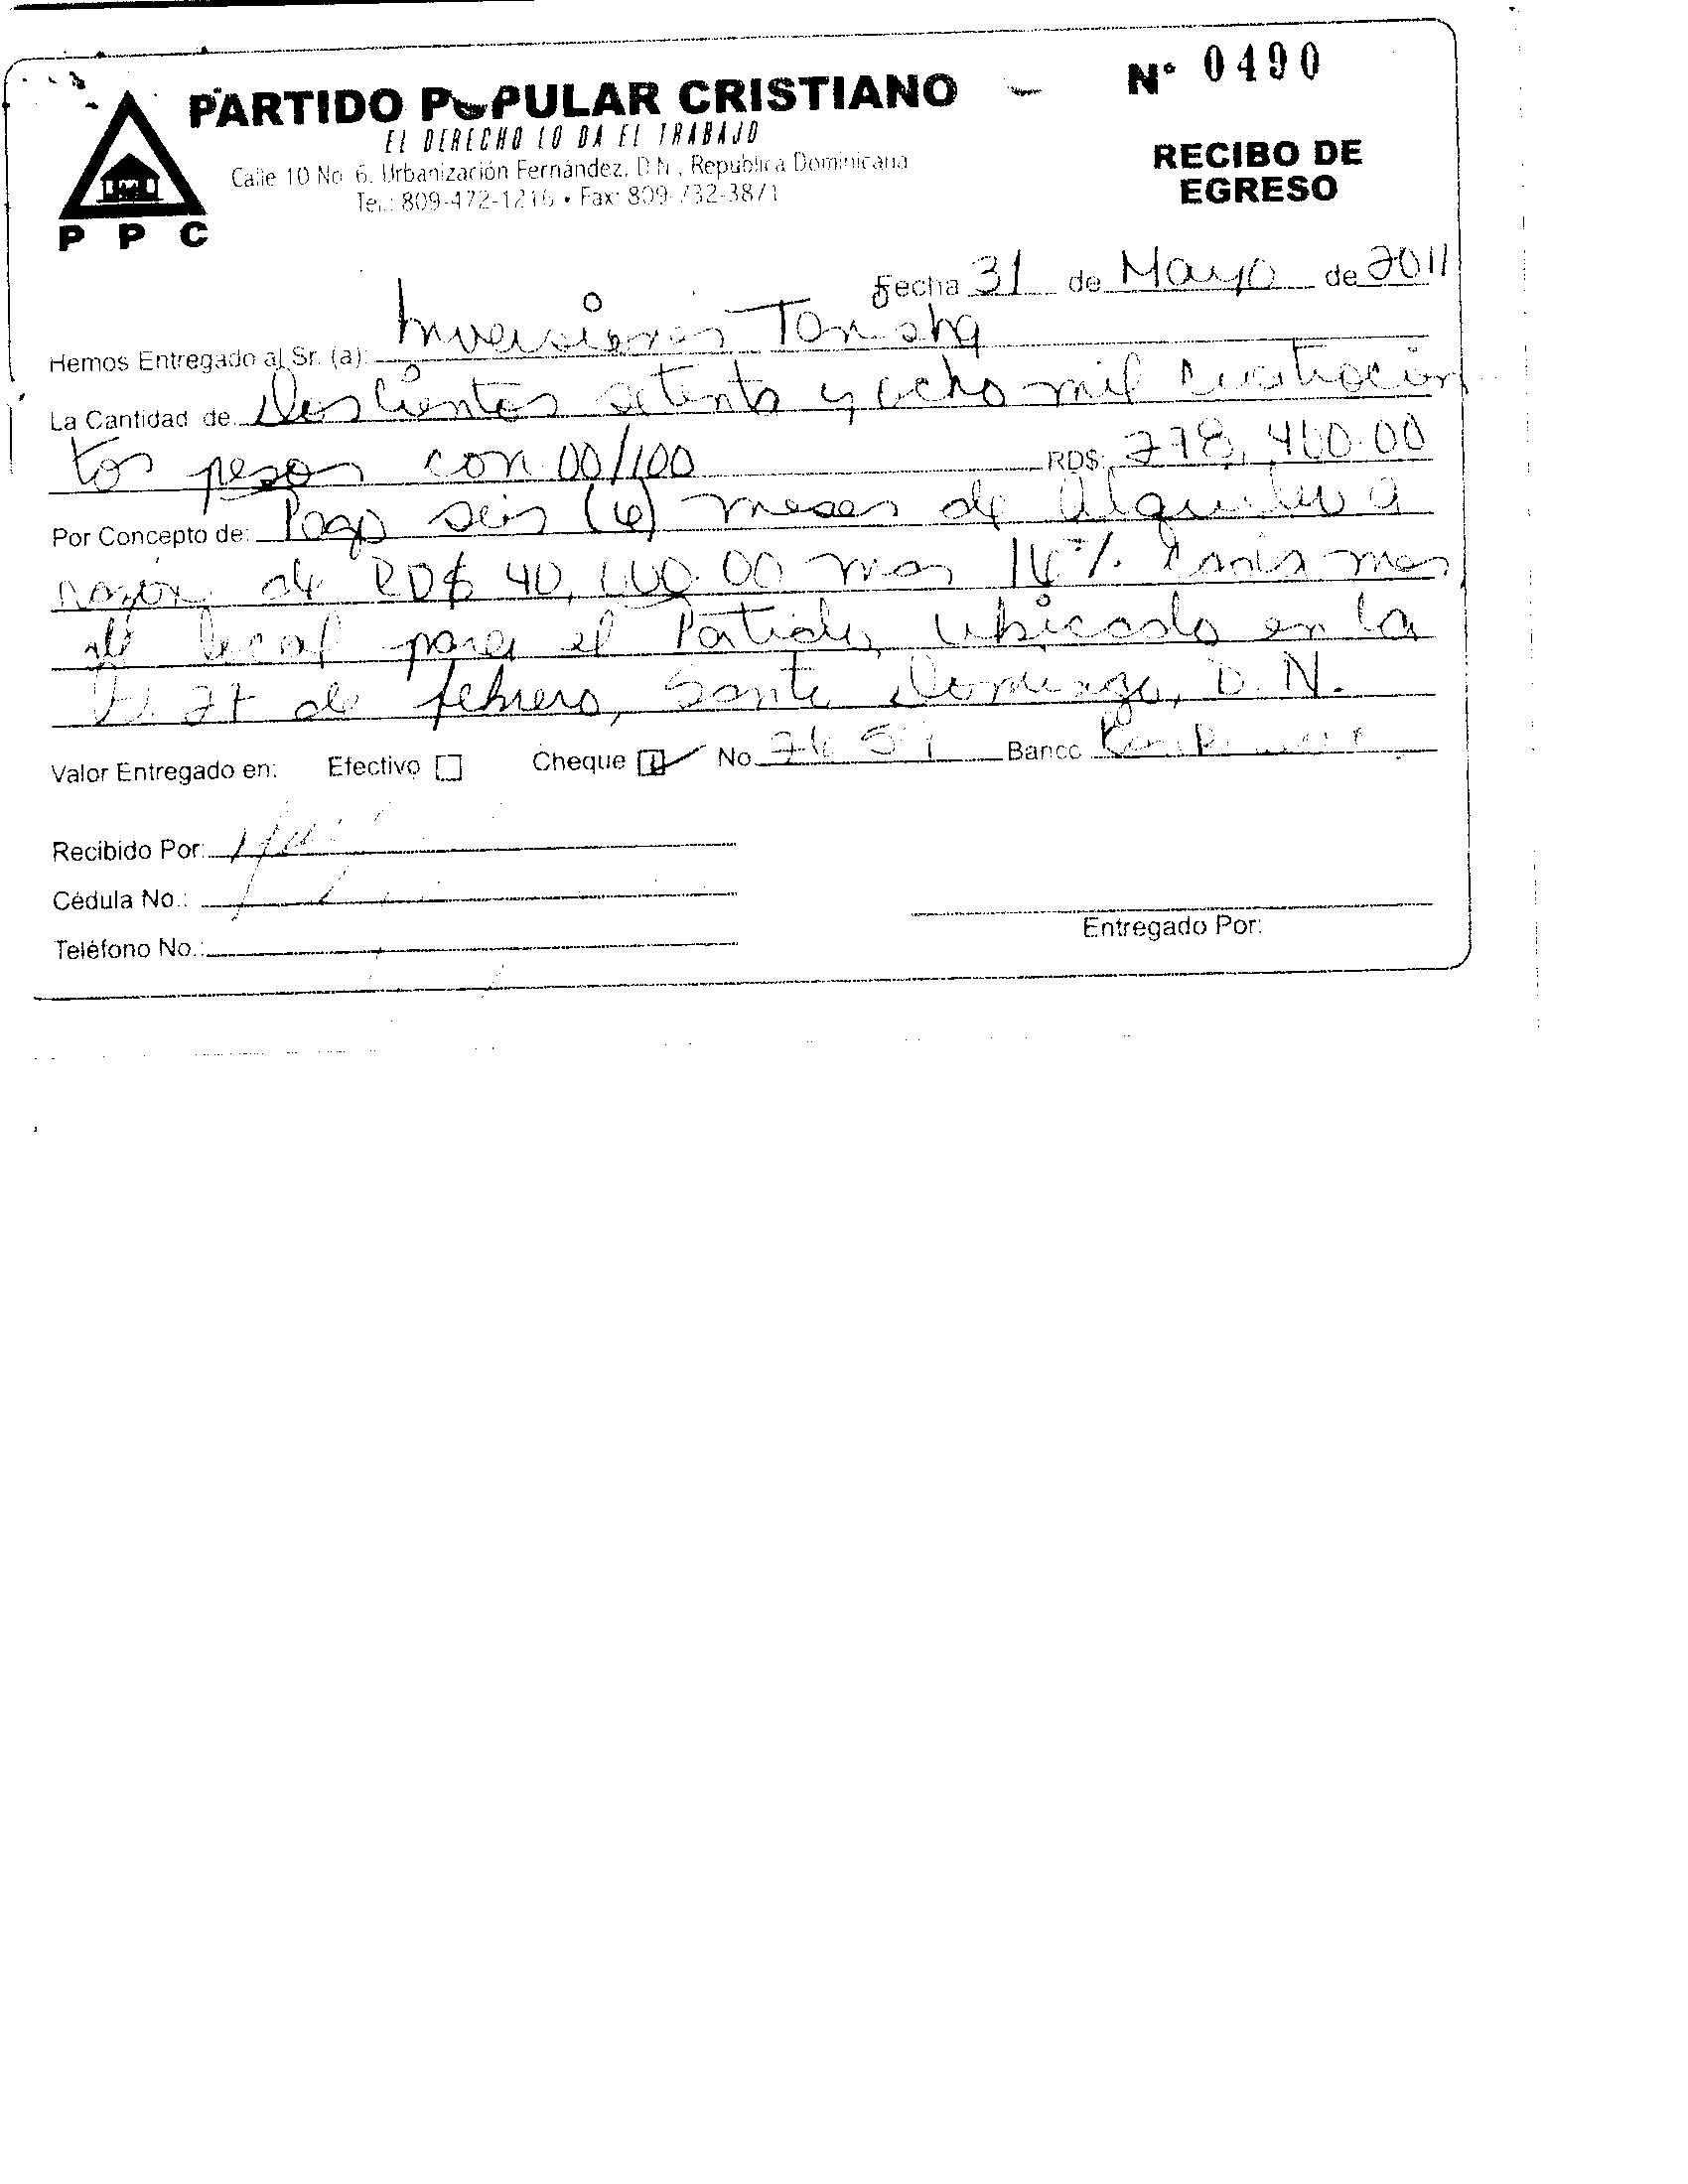 PARTIDO POPULAR CRISTIANO
N° 0490
EL DERECHO LO DA EL TRABAJO
Calle 10 No. 6, Urbanización Fernández, D.N., Republica Dominicana
Tel.: 809-472-1216 • Fax: 809-732-3871
RECIBO DE
EGRESO
P P C
Fecha 31 de Mayo de 2011
Hemos Entregado al Sr. (a): Inversiones
La Cantidad de Doscientos setenta y ocho mil cuatrocien
tos pesos con 00/100 RD$ 278, 400.00
Por Concepto de: Pago seis (6) meses de alquiler a
razon de RD$ 40, 000.00 mas 16% cada mes
de local para el Partido, ubicado en la
27 de febrero, Santo Domingo, D. N.
Valor Entregado en: Efectivo Cheque No. Banco
Recibido Por:
Cédula No.:
Teléfono No.:
Entregado Por: